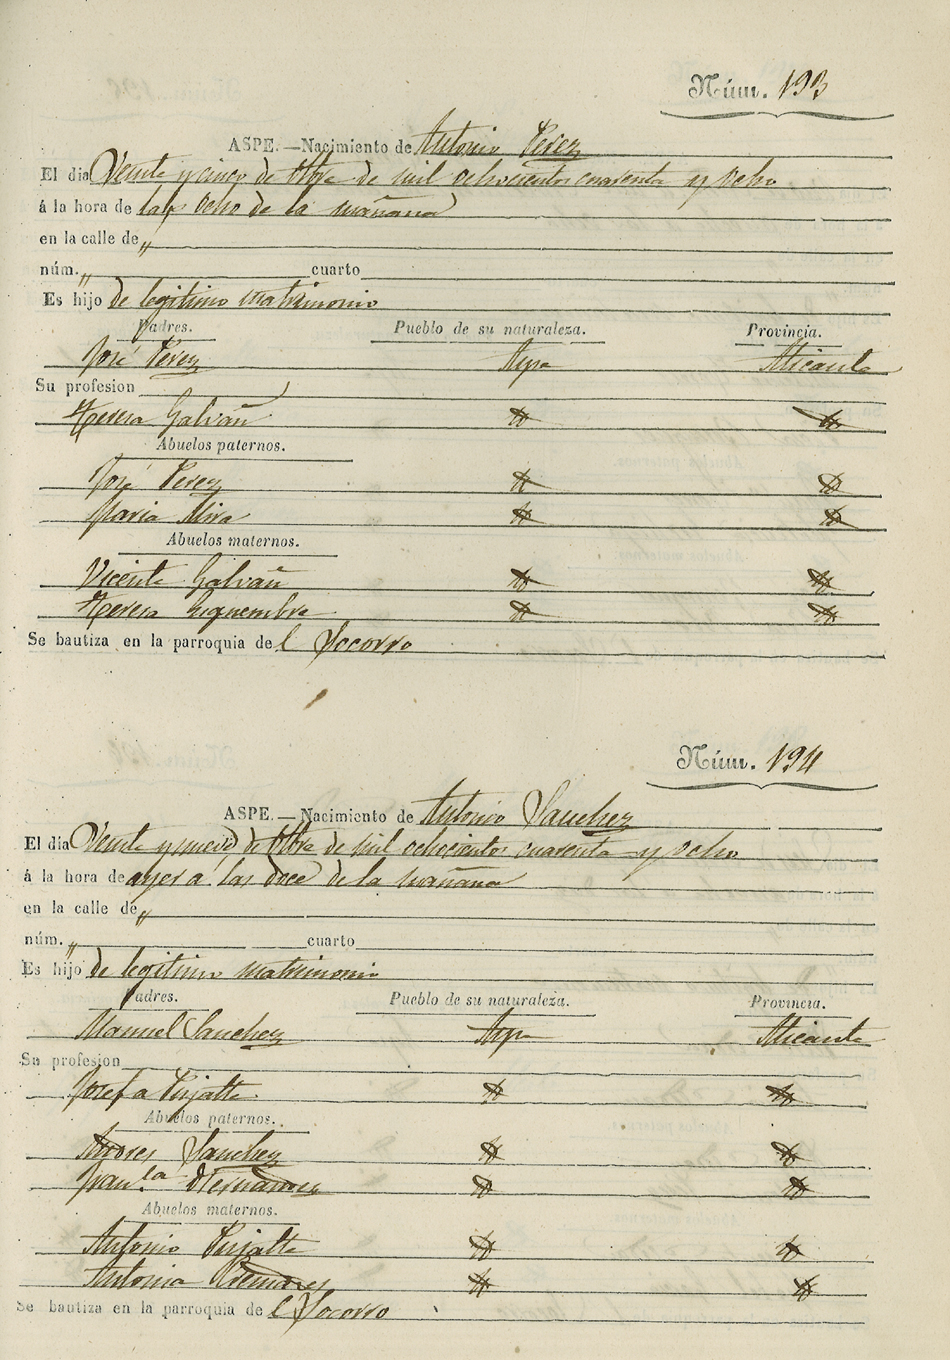 Núm. 193
ASPE.—Nacimiento de Antonio Perez
El dia Veinte y cinco de Obre de mil ochocientos cuarenta y ocho
á la hora de las ocho de la mañana
en la calle de "
núm. " cuarto
Es hijo de legitimo matrimonio
Padres. Pueblo de su naturaleza. Provincia.
José Perez Aspe Alicante
Su profesion
Teresa Galvañ
Abuelos paternos.
José Perez
Maria Mira
Abuelos maternos.
Vicente Galvañ
Teresa
Se bautiza en la parroquia del Socorro
Núm. 194
ASPE.—Nacimiento de Antonio Sanchez
El dia Veinte y nueve de Obre de mil ochocientos cuarenta y ocho
á la hora de ayer á las doce de la mañana
en la calle de "
núm. " cuarto
Es hijo de legitimo matrimonio
Padres. Pueblo de su naturaleza. Provincia.
Manuel Sanchez Aspe Alicante
Su profesion
Josefa Pujalte
Abuelos paternos.
Sanchez
Fran.ca Hernandez
Abuelos maternos.
Antonio Pujalte
Antonia
Se bautiza en la parroquia de el Socorro